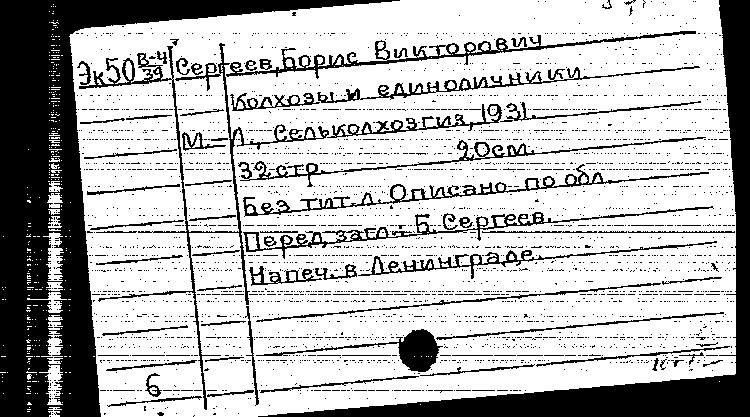 Эк50 В-4/39 Сергеев, Борис Викторович
Колхозы и единоличники.
М.-Л., Сельколхозгиз, 1931.
32 стр. 20 см.
Без тит. л. Описано по обл.
Перед загл.: Б. Сергеев.
Напеч. в Ленинграде.
6